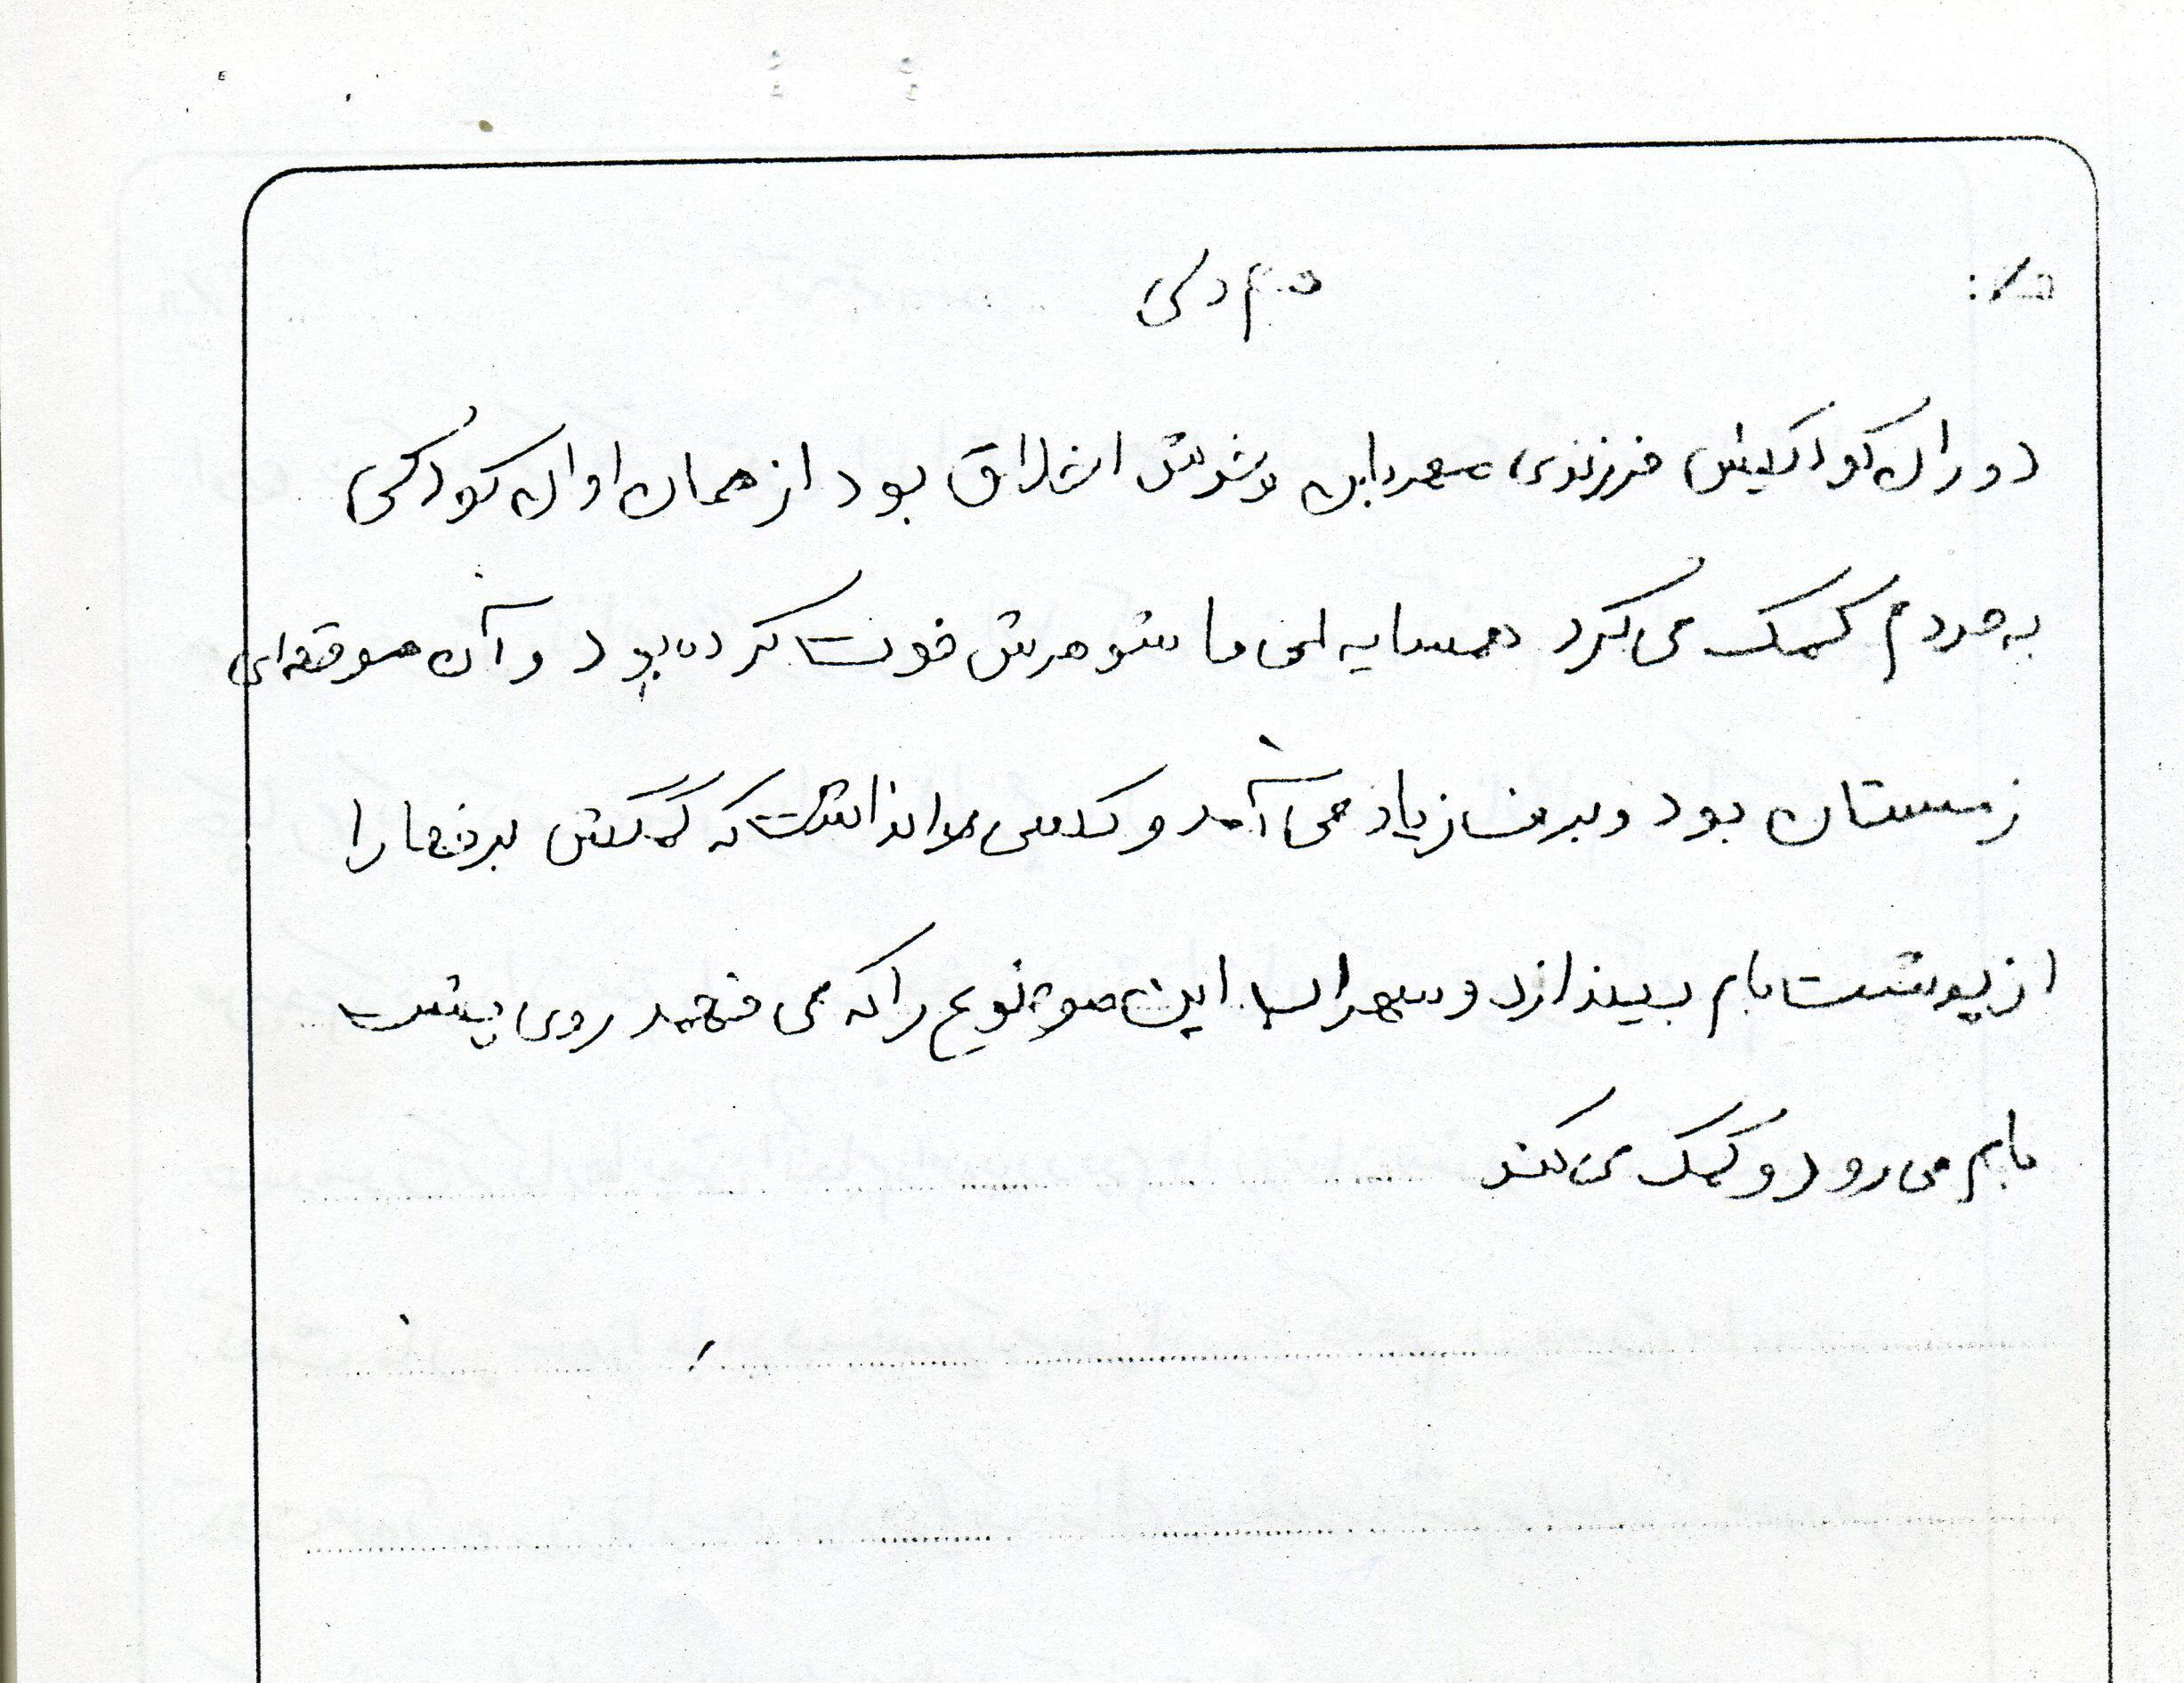 مردمی
دوران کودکیش فرزندی مهربان وخوش اخلاق بود از همان اوان کودکی
به مردم کمک می کرد همسایه ای ما شوهرش فوت کرده بود و آن موقعه ای
زمستان بود وبرف زیاد می آمد و کسی را نداشت که کمکش برفها را
از پوشت بام بیندازد و سهراب این موضوع را که می فهمد روی پشت
بام می رود و کمک می کند